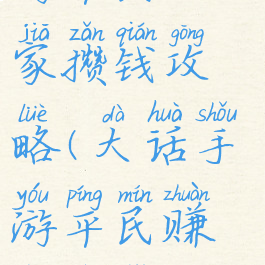 jiā zǎn qián gōng
家攒钱攻
lüè dà huà shǒu
略(大话手
yóu píng mín zhuàn
游平民赚